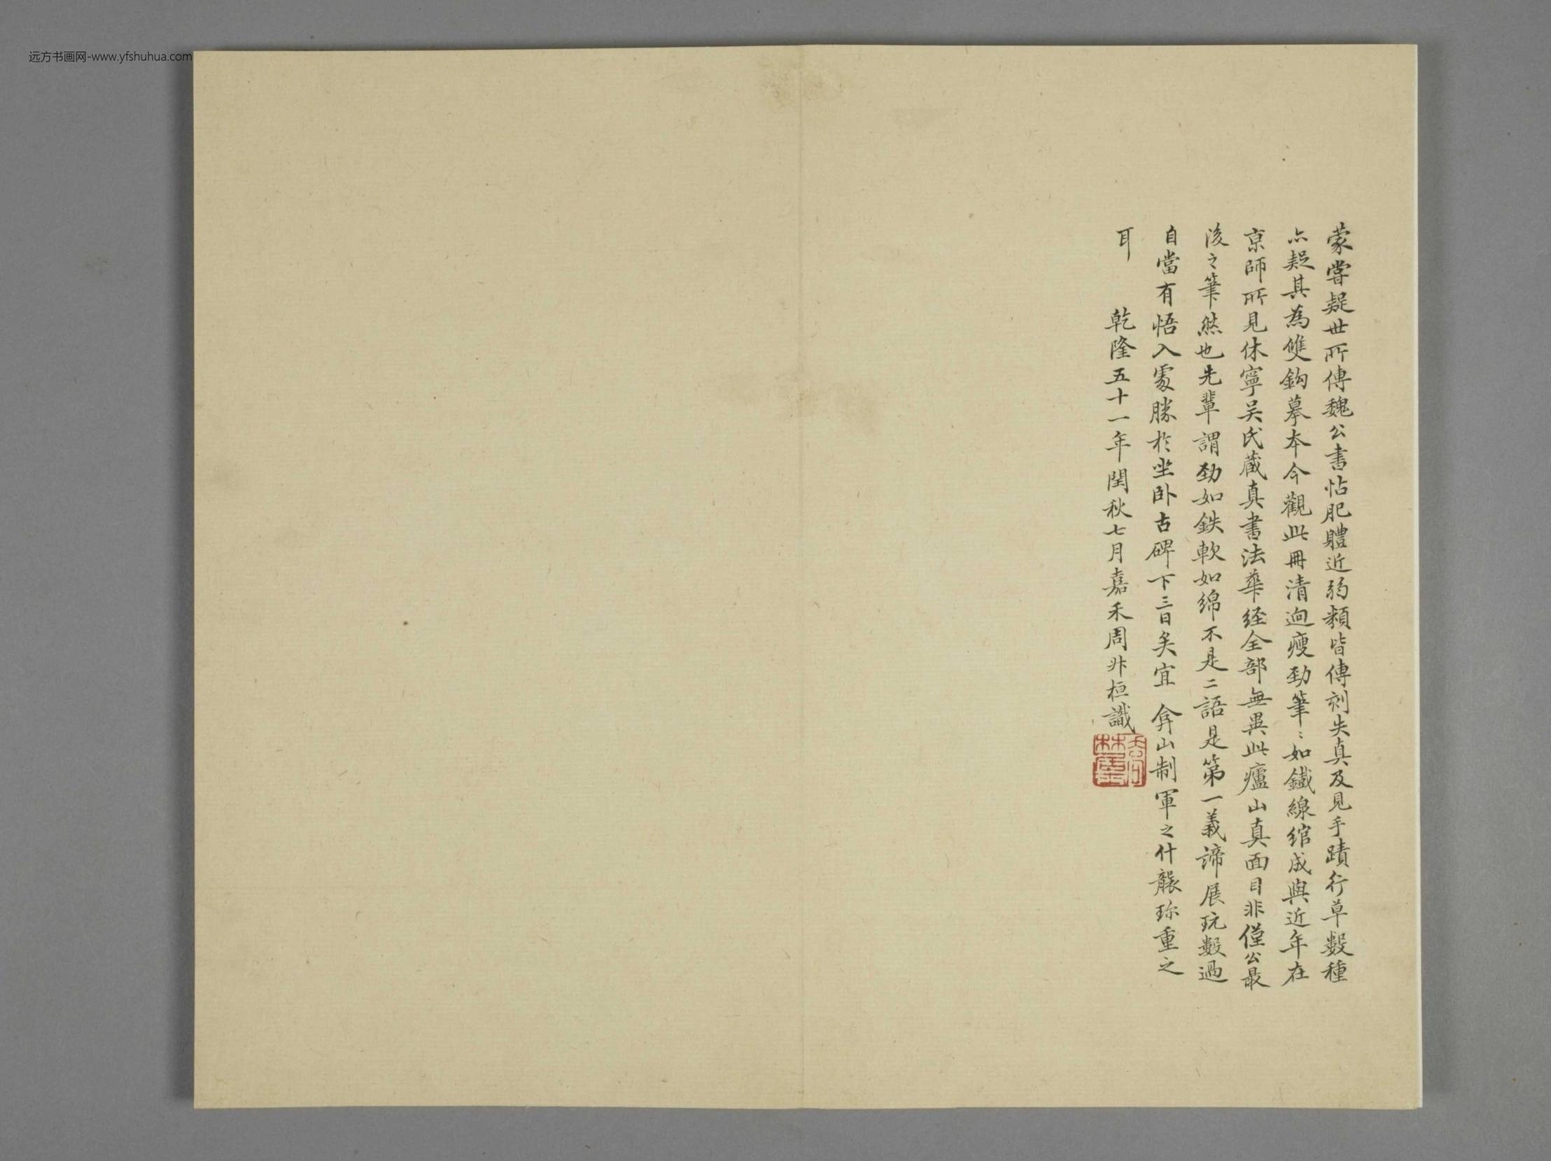 远方书画网-www.yfshuhua.com
蒙嘗疑世所傳魏公書帖肥體近弱類皆傳刻失真及見手蹟行草數種
亦疑其為雙鈎摹本今觀此冊清迥瘦勁筆〻如鐵線綰成與近年在
京師所見休寧吴氏藏真書法華經全部無異此廬山真面目非僅公最
後之筆然也先輩謂勁如鉄軟如綿不是二語是第一義諦展玩數過
自當有悟入處勝於坐卧古碑下三日矣宜 弇山制軍之什襲珍重之
耳 乾隆五十一年閏秋七月嘉禾周升桓識